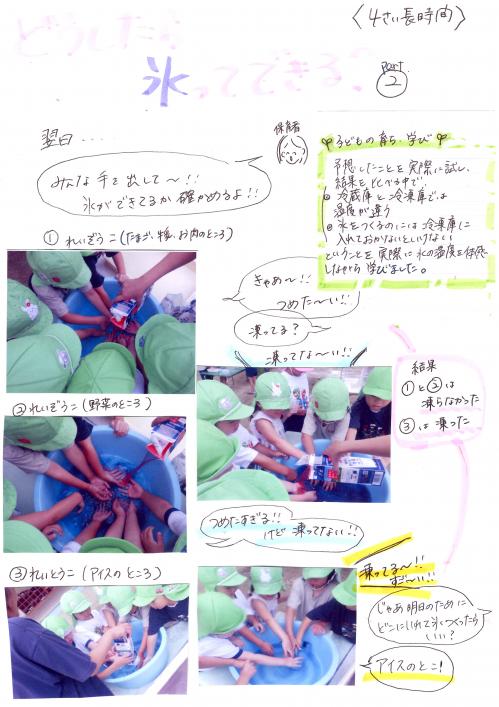 〈4さい長時間〉
どうしたら
氷ってできる?
part
②
翌日.....
保育者
みんな手を出して〜!!
氷ができてるか確かめるよ!!
子どもの育ち・学び
予想したことを実際に試し、
結果を比べる中で、
冷蔵庫と冷凍庫では
温度が違う
氷をつくるのには冷凍庫に
入れておかないといけない
ということを実際に氷の温度を体感
しながら学びました。
①れいぞうこ(たまご、牛乳、お肉のところ)
きゃあ〜!!
つめた〜い!!
凍ってる?
凍ってな〜い!!
結果
①と②は
凍らなかった
③は凍った
②れいぞうこ(野菜のところ)
つめたすぎる!!
けど凍ってない!!
③れいとうこ(アイスのところ)
凍ってる〜!!
すご〜い!!
じゃあ明日のために
どこにいれて氷つくったら
いい?
アイスのとこ!